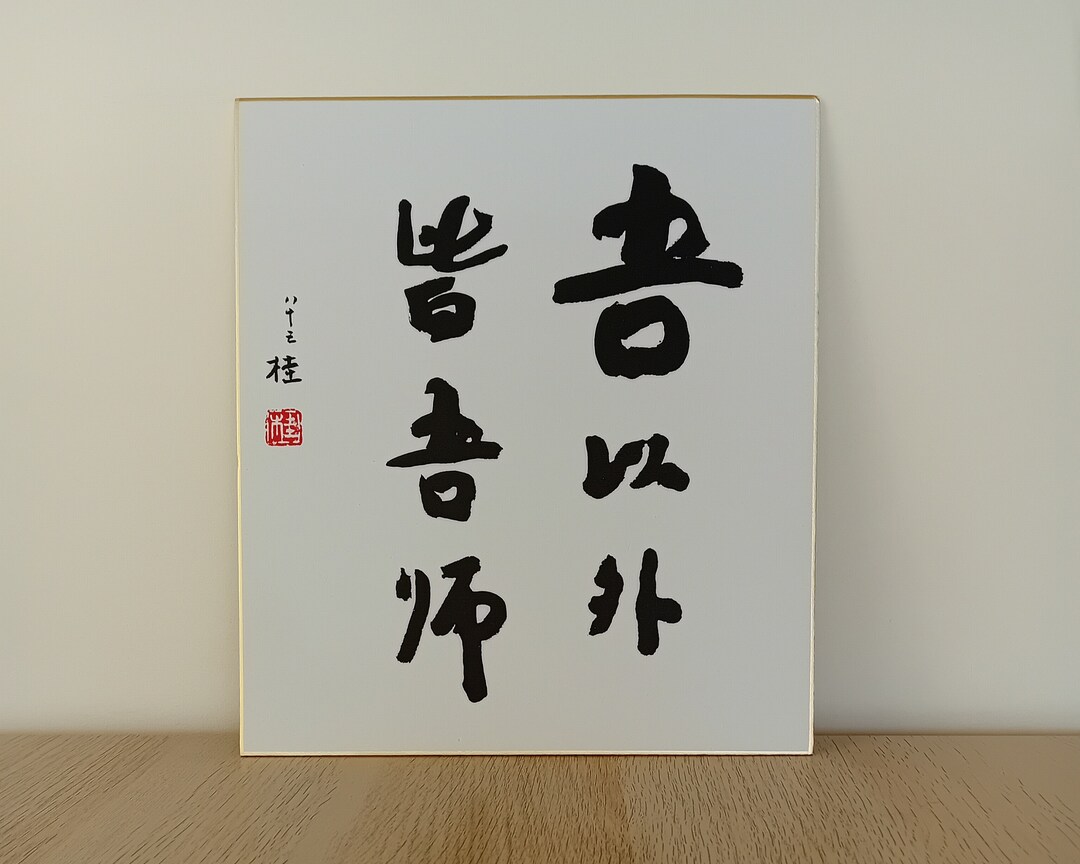 吾以外
皆吾师
八十三 桂
桂